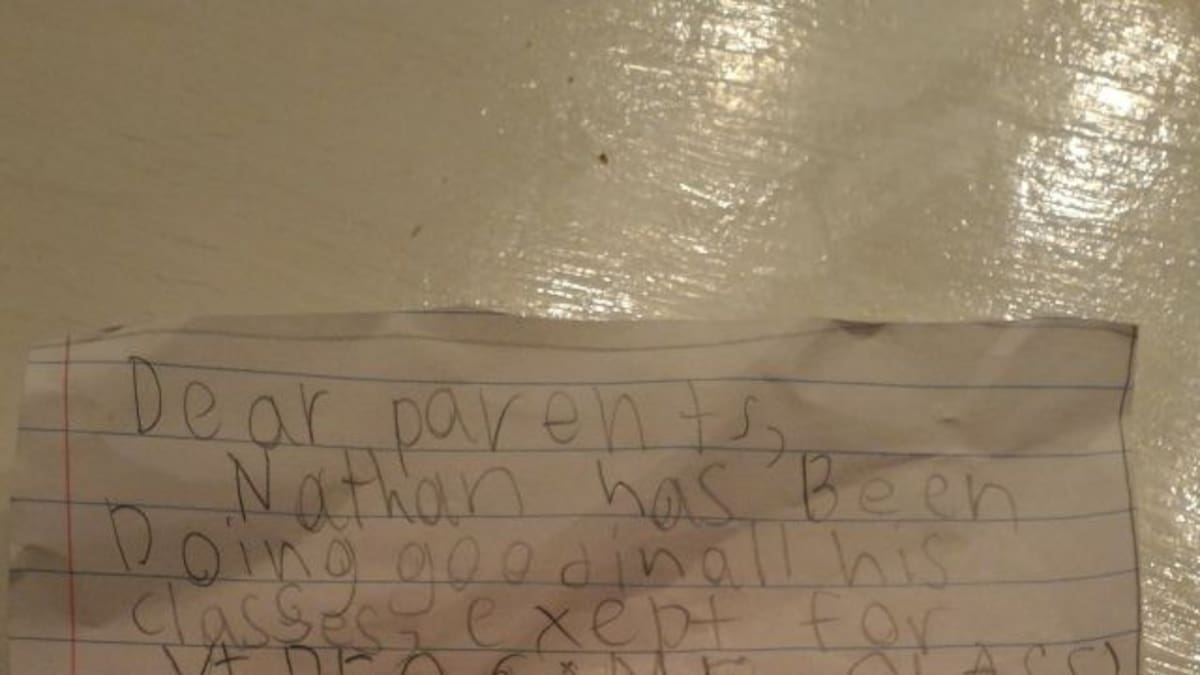 Dear parents,
Nathan has Been
Doing good in all his
classes, exept for